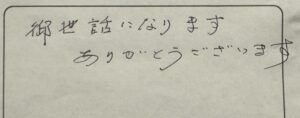 御世話になります
ありがとうございます